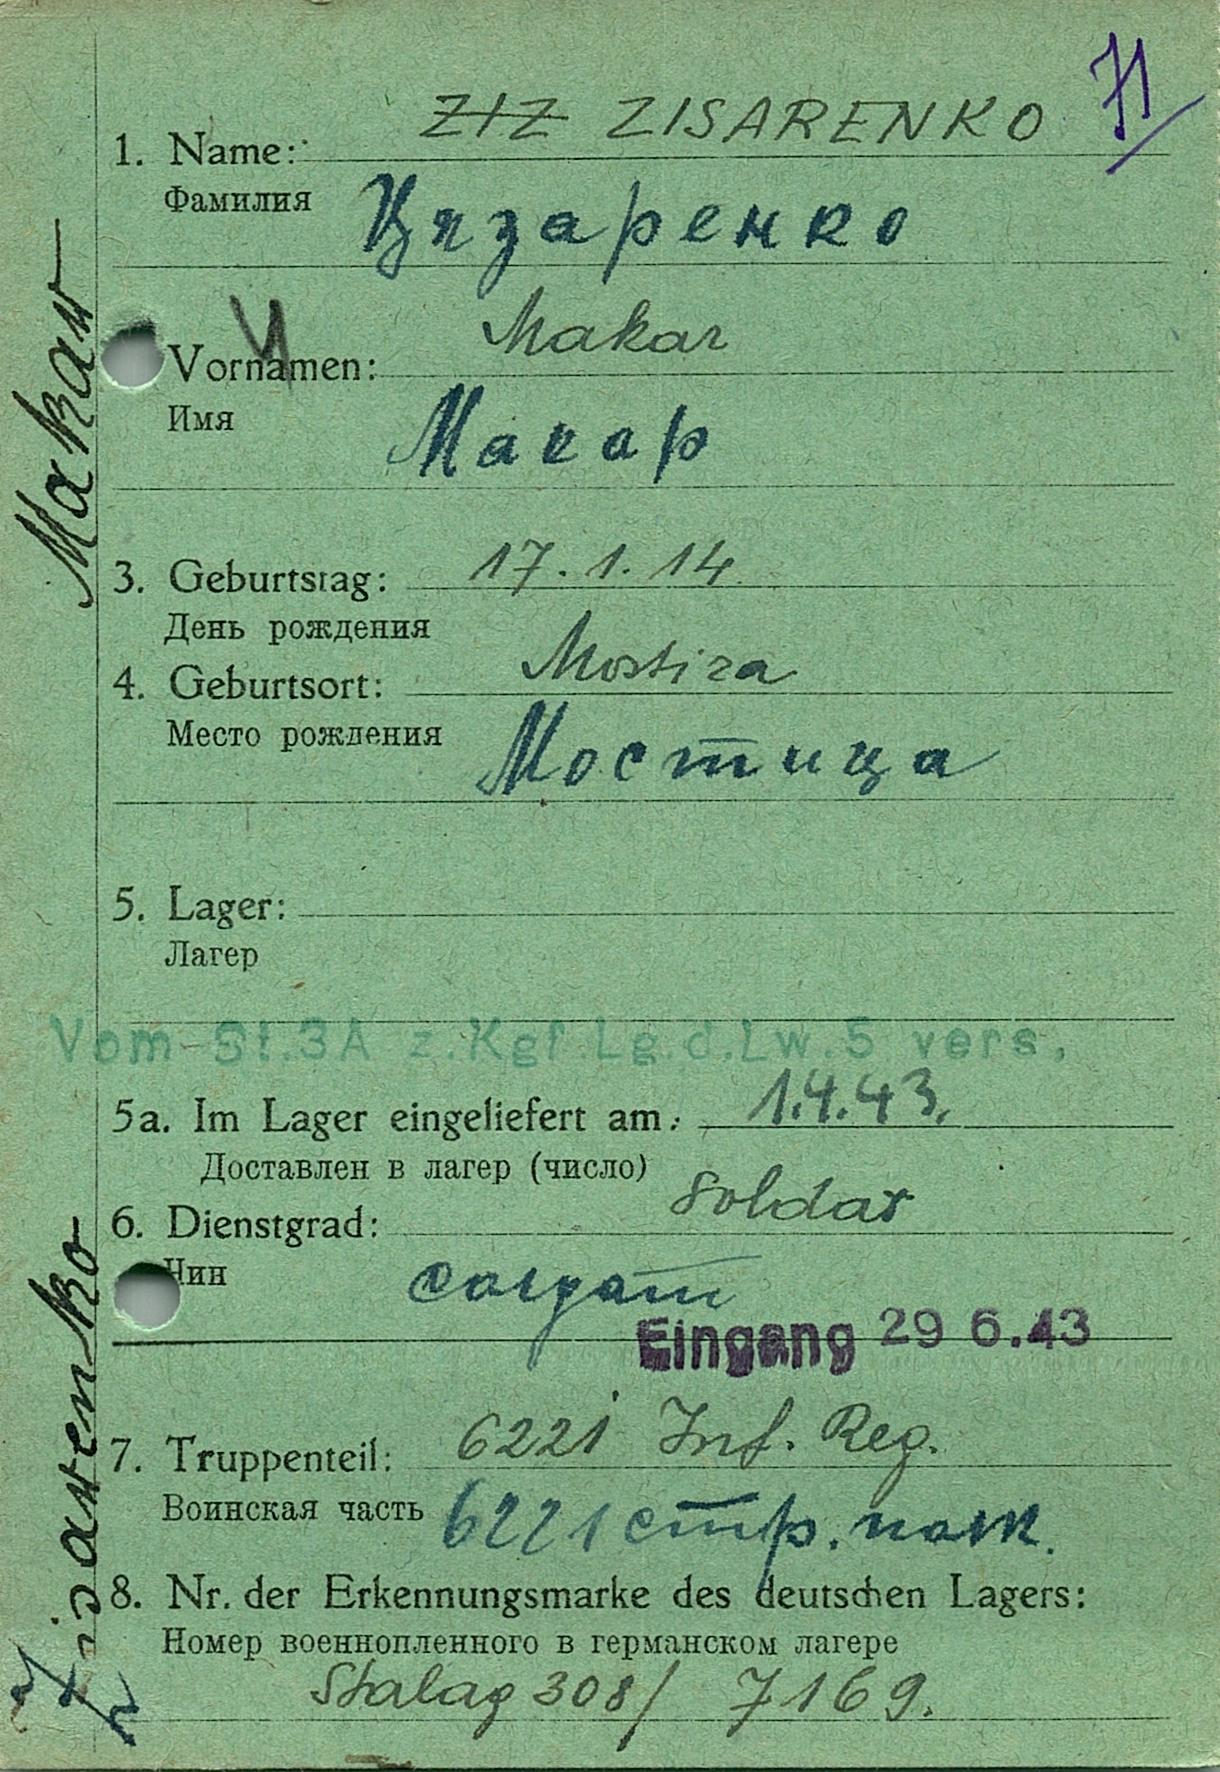 71
ZIZ ZISARENKO
1. Name:
Фамилия Цизаренко
Makar
Vornamen:
Имя
Макар
3. Geburtstag: 17.1.14
День рождения
4. Geburtsort: Mostiza
Место рождения Мостица
5. Lager:
Лагер
Vom St.3A z.Kgf.Lg.d.Lw.5 vers.
5a. Im Lager eingeliefert am: 1.4.43.
Доставлен в лагер (число)
6. Dienstgrad: Soldat
Чин солдат
Eingang 29 6.43
7. Truppenteil: 6221 Inf. Reg.
Воинская часть 6221 стр. полк.
8. Nr. der Erkennungsmarke des deutschen Lagers:
Номер военнопленного в германском лагере
Stalag 308/ 7169.
Zisarenko Makar